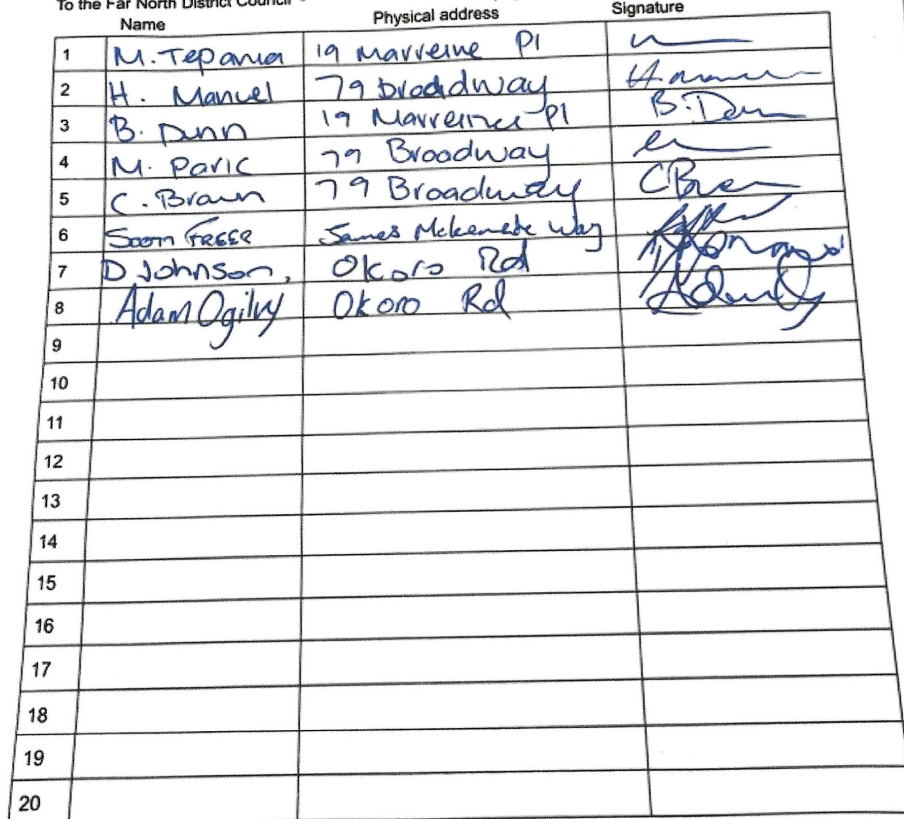 To the Far North District Council
Name Physical address Signature
1 M. Tepania 19 Marreine Pl
2 H. Manuel 79 Broadway
3 B. Dunn 19 Marreiner Pl B. Dun
4 M. Paric 79 Broadway
5 C. Brown 79 Broadway
6 James Way
7 D Johnson, Okoro Rd
8 Adam Ogilvy Okoro Rd
9
10
11
12
13
14
15
16
17
18
19
20